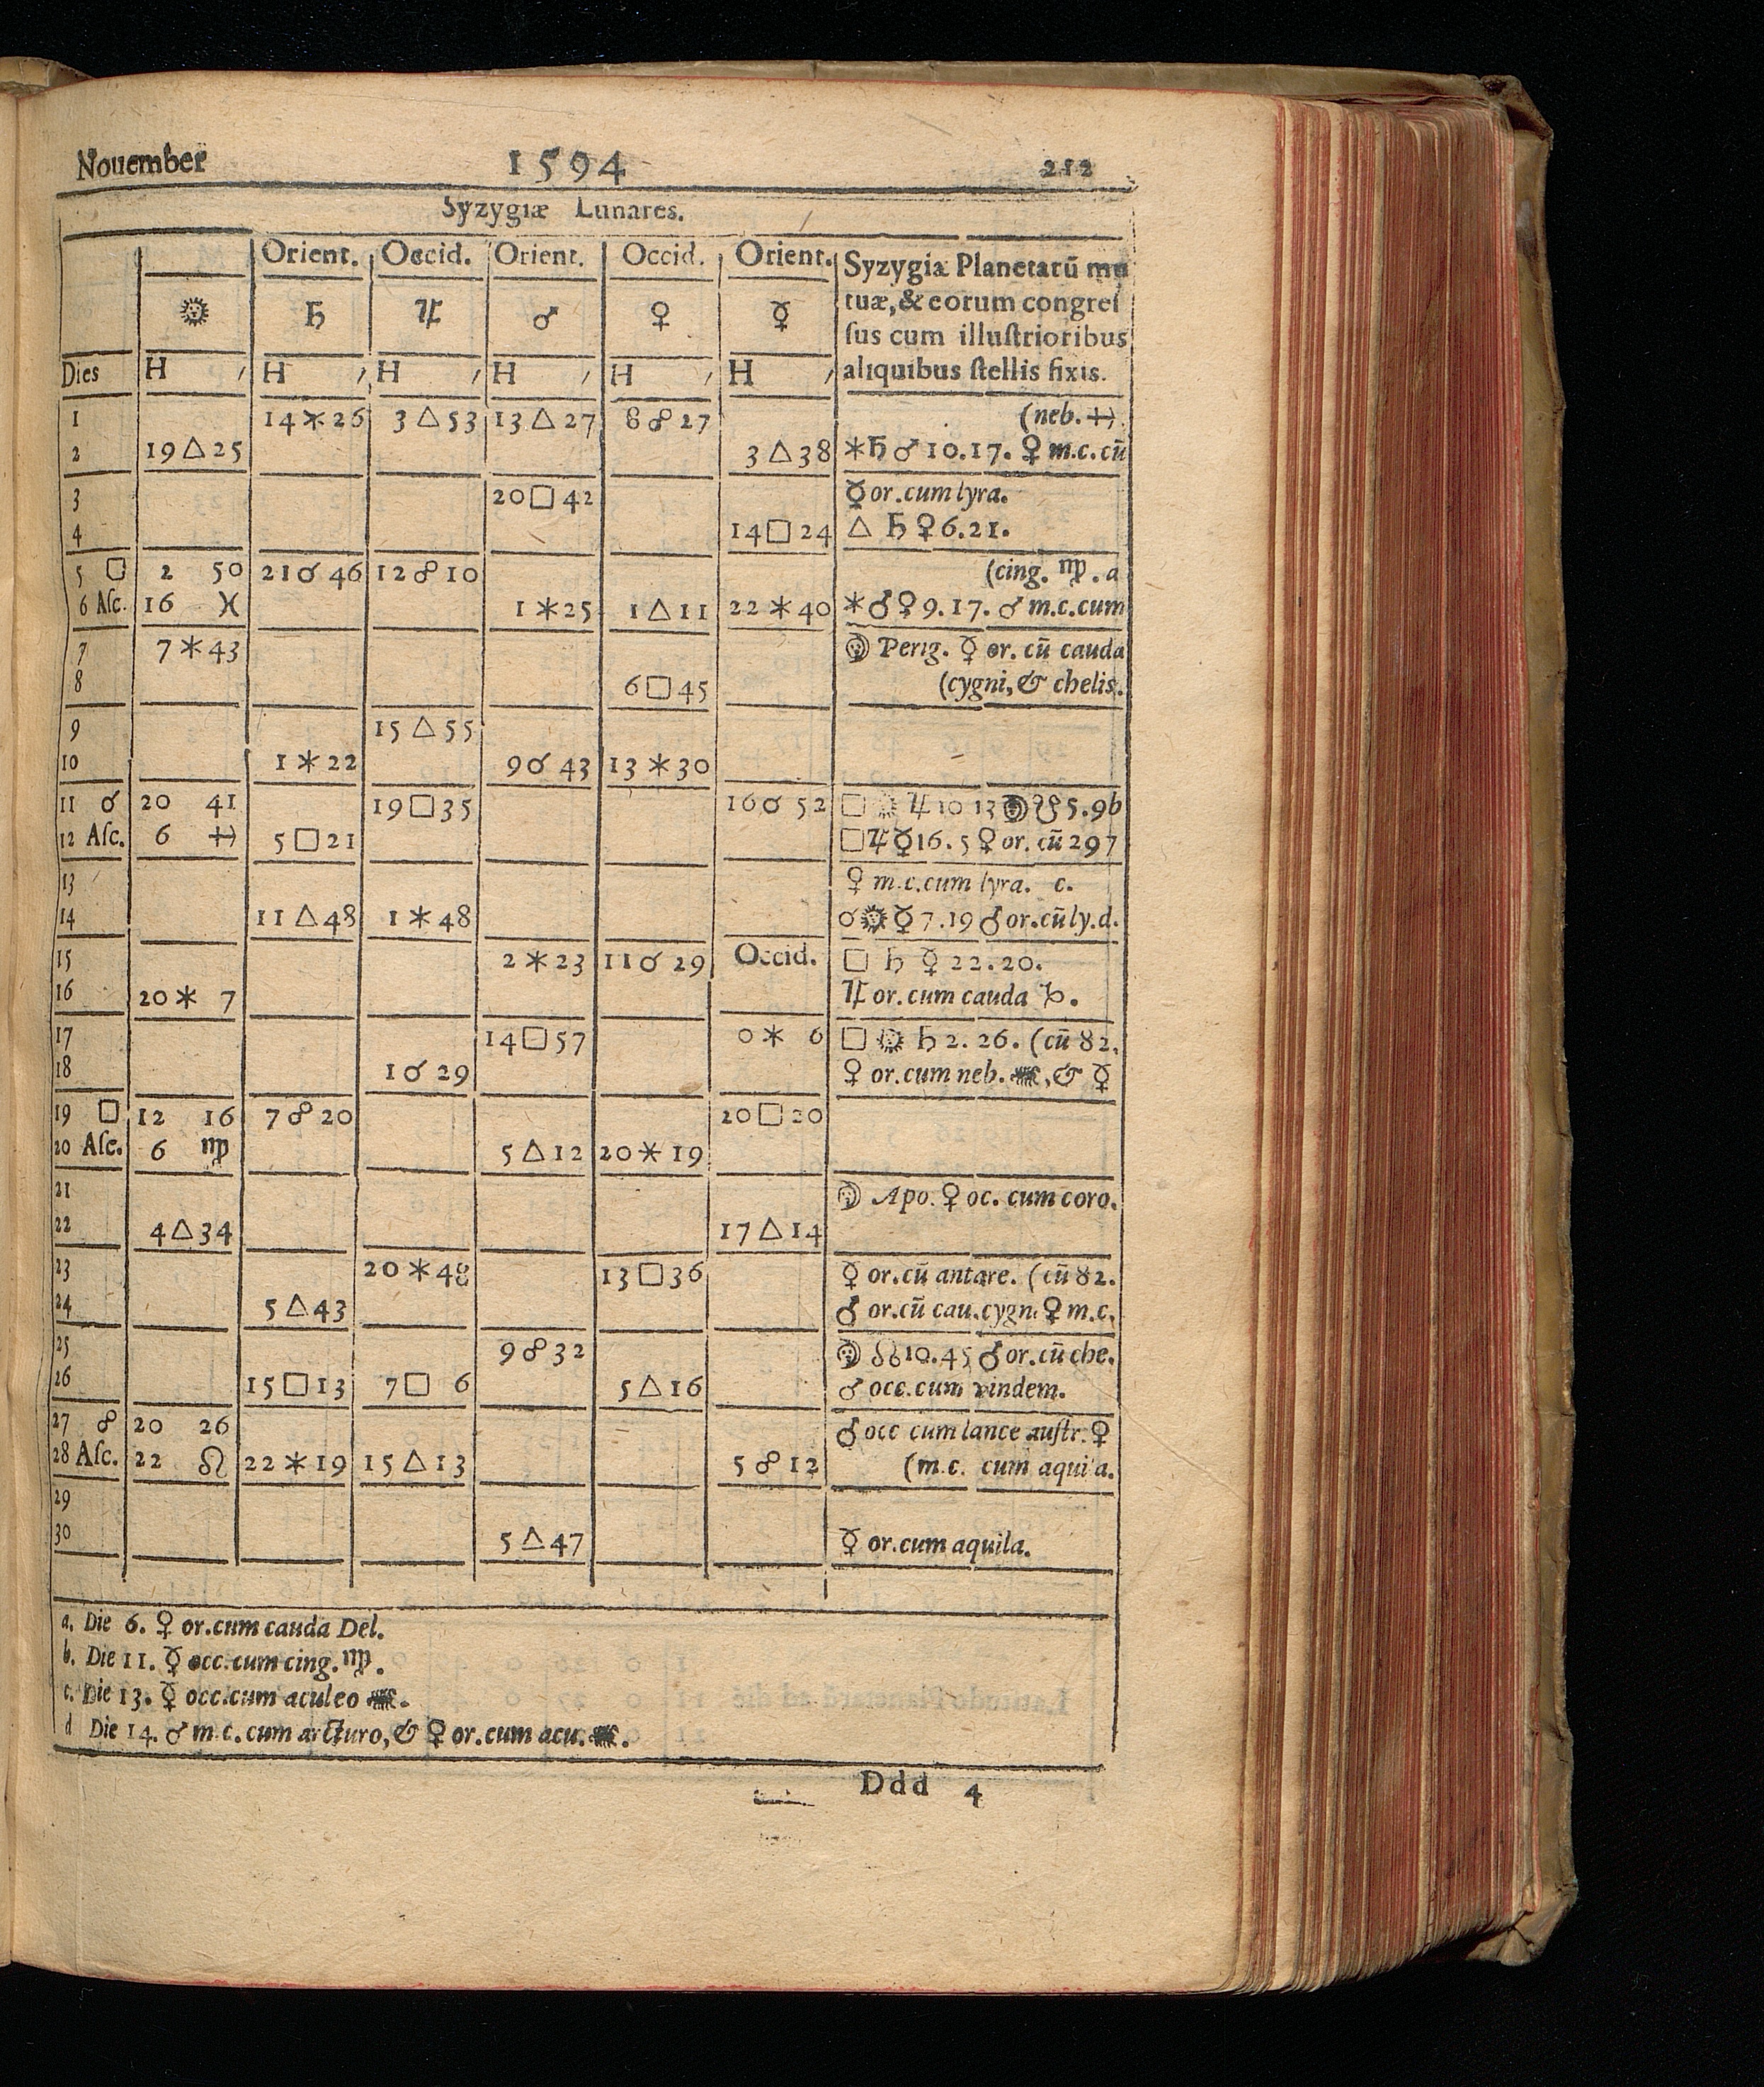 Nouember 1594 212
Syzygiæ Lunares.
Orient. Occid. Orient. Occid. Orient. Syzygiæ Planetarũ mu
tuæ, & eorum congreſ
☉ ♄ ♃ ♂ ♀ ☿
ſus cum illuſtrioribus
Dies H ′ H ′ H ′ H ′ H ′ H ′ aliquibus ſtellis fixis.
1 14⚹26 3△53 13△27 8☍27 (neb. ♐.
2 19△25 3△38 ⚹♄♂10.17. ♀ m.c.cũ
3 20□42 ☿or.cum lyra.
4 14□24 △ ♄♀6.21.
5 □ 2 50 21☌46 12☍10 (cing. ♍. a
6 Aſc. 16 ♓ 1⚹25 1△11 22⚹40 ⚹♂♀9.17. ♂ m.c.cum
7 7⚹43 ☽ Perig. ☿ or. cũ cauda
8 6□45 (cygni, & chelis.
9 15△55
10 1⚹22 9☌43 13⚹30
11 ☌ 20 41 19□35 16☌52 □☉♃10 13☽☋5.9b
12 Aſc. 6 ♐ 5□21 □♃☿16.5♀or. cũ 297
13 ♀ m.c.cum lyra. c.
14 11△48 1⚹48 ☌☉☿7.19♂or.cũly.d.
15 2⚹23 11☌29 Occid. □ ♄ ☿ 22.20.
16 20⚹ 7 ♃ or.cum cauda ♑.
17 14□57 0⚹ 6 □ ☉ ♄ 2. 26. (cũ 82.
18 1☌29 ♀ or.cum neb. ♏, & ☿
19 □ 12 16 7☍20 20□20
20 Aſc. 6 ♍ 5△12 20⚹19
21 ☽ Apo. ♀ oc. cum coro.
22 4△34 17△14
23 20⚹48 13□36 ☿ or.cũ antare. (cũ 82.
24 5△43 ♂ or.cũ cau.cygni ♀ m.c.
25 9☍32 ☽ ☊10.45 ♂or.cũ che.
26 15□13 7□ 6 5△16 ♂ occ.cum vindem.
27 ☍ 20 26 ♂ occ cum lance auſtr. ♀
28 Aſc. 22 ♌ 22⚹19 15△13 5☍12 (m.c. cum aquila.
29
30 5△47 ☿ or.cum aquila.
a. Die 6. ♀ or.cum cauda Del.
b. Die 11. ☿ occ.cum cing. ♍.
c. Die 13. ☿ occ.cum aculeo ♏.
d Die 14. ♂ m.c. cum arcturo, & ♀ or.cum acu. ♏.
Ddd 4